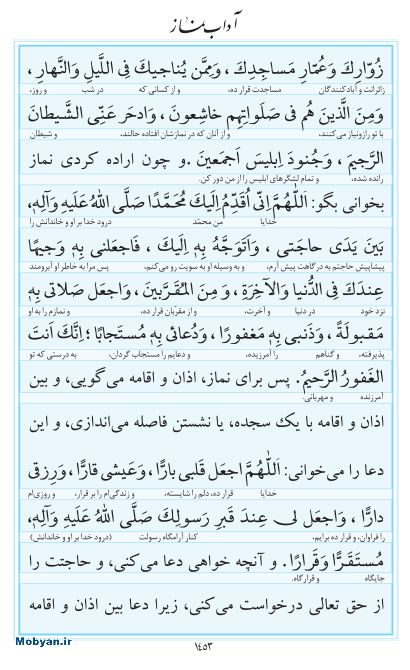 آداب نماز
زُوّارِكَ وَعُمّارِ مَساجِدِكَ ، وَمِمَّن يُناجيكَ فِى اللَّيلِ وَالنَّهارِ ،
زائرانت و آبادكنندگان مساجدت قرار ده، و از كسانى كه در شب و روز،
وَمِنَ الَّذينَ هُم فى صَلَواتِهِم خاشِعونَ ، وَادحَر عَنِّى الشَّيطانَ
با تو رازونياز مى‌كنند، و از آنان كه در نمازشان افتاده حالند، و شيطان
الرَّجيمَ ، وَجُنودَ اِبليسَ اَجمَعينَ . و چون اراده كردى نماز
رانده شده، و تمام لشگرهاى ابليس را از من دور كن.
بخوانى بگو: اَللّهُمَّ اِنّى اُقَدِّمُ اِلَيكَ مُحَمَّدًا صَلَّى اللهُ عَلَيهِ وَآلِهِ،
خدايا من محمّد درود خدا بر او و خاندانش را
بَينَ يَدَى حاجَتى ، وَاَتَوَجَّهُ بِهِ اِلَيكَ ، فَاجعَلنى بِهِ وَجيهًا
پيشاپيش حاجتم به درگاهت پيش آرم، و به وسيله او به سويت رو مى‌كنم، پس مرا به خاطر او آبرومند
عِندَكَ فِى الدُّنيا وَالآخِرَةِ ، وَمِنَ المُقَرَّبينَ ، وَاجعَل صَلاتى بِهِ
نزد خود در دنيا و آخرت، و از مقربان قرار ده، و نمازم را به او
مَقبولَةً ، وَذَنبى بِهِ مَغفورًا ، وَدُعائى بِهِ مُستَجابًا ؛ اِنَّكَ اَنتَ
پذيرفته، و گناهم را آمرزيده، و دعايم را مستجاب گردان، به درستى كه تو
الغَفورُ الرَّحيمُ. پس براى نماز، اذان و اقامه مى‌گويى، و بين
آمرزنده و مهربانى.
اذان و اقامه با يك سجده، يا نشستن فاصله مى‌اندازى، و اين
دعا را مى‌خوانى: اَللّهُمَّ اجعَل قَلبى بارًّا ، وَعَيشى قارًّا ، وَرِزقى
خدايا قرار ده، دلم را شايسته، و زندگى‌ام را بر قرار، و روزى‌ام
دارًّا ، وَاجعَل لى عِندَ قَبرِ رَسولِكَ صَلَّى اللهُ عَلَيهِ وَآلِهِ،
را فراوان، و قرار ده برايم، كنار آرامگاه رسولت (درود خدا بر او و خاندانش)
مُستَقَرًّا وَقَرارًا . و آنچه خواهى دعا مى‌كنى، و حاجتت را
جايگاه و قرارگاه.
از حق تعالى درخواست مى‌كنى، زيرا دعا بين اذان و اقامه
۱۴۵۳
Mobyan.ir